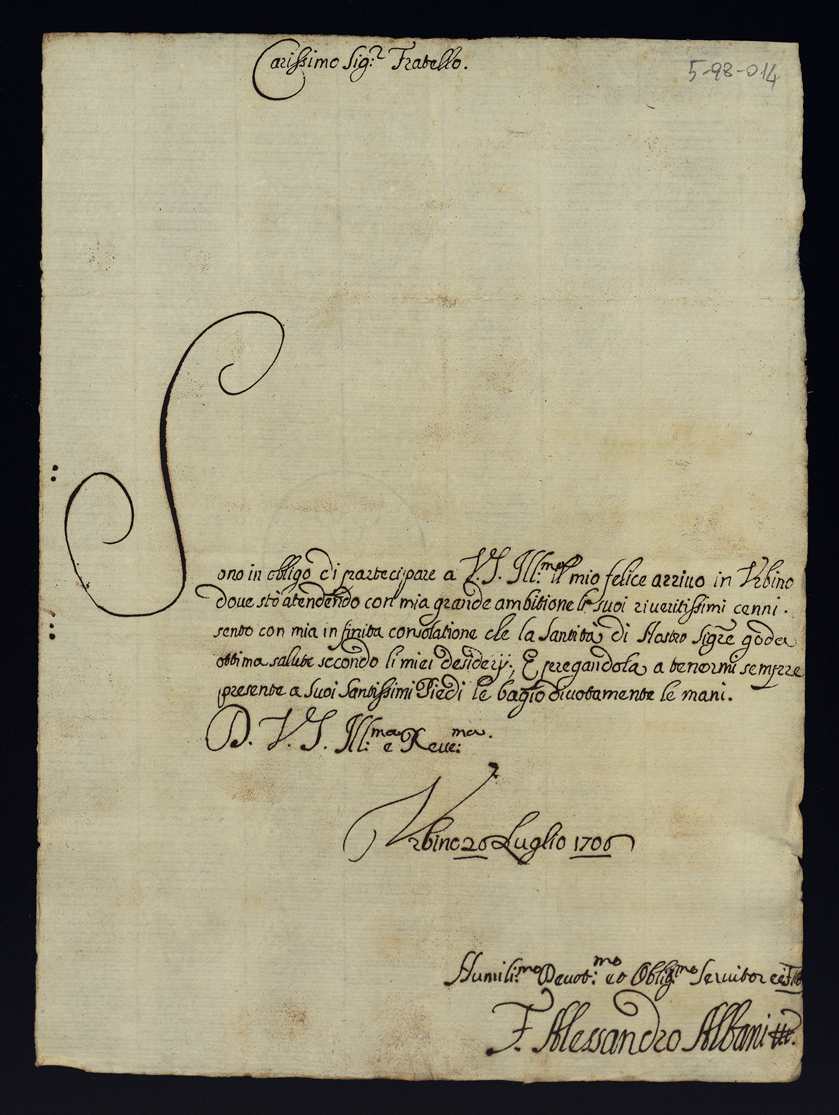 Carissimo Sig.r Fratello.
5-98-014
Sono in obligo di partecipare a V.S. Ill.mo il mio felice arriuo in Vrbino
doue stò atendendo con mia grande ambitione li suoi riueritissimi cenni.
sento con mia infinita consolatione che la Santità di Nostro Sigre goda
ottima salute secondo li miei desiderij; E pregandola a tenermi sempre
presente a Suoi Santissimi Piedi le bagio diuotamente le mani.
D. V. S. Ill:ma e Reue:ma.
Vrbino 26 Luglio 1706
Humili:mo Deuot:mo et Oblig:mo Seruitor e
F. Alessandro Albani